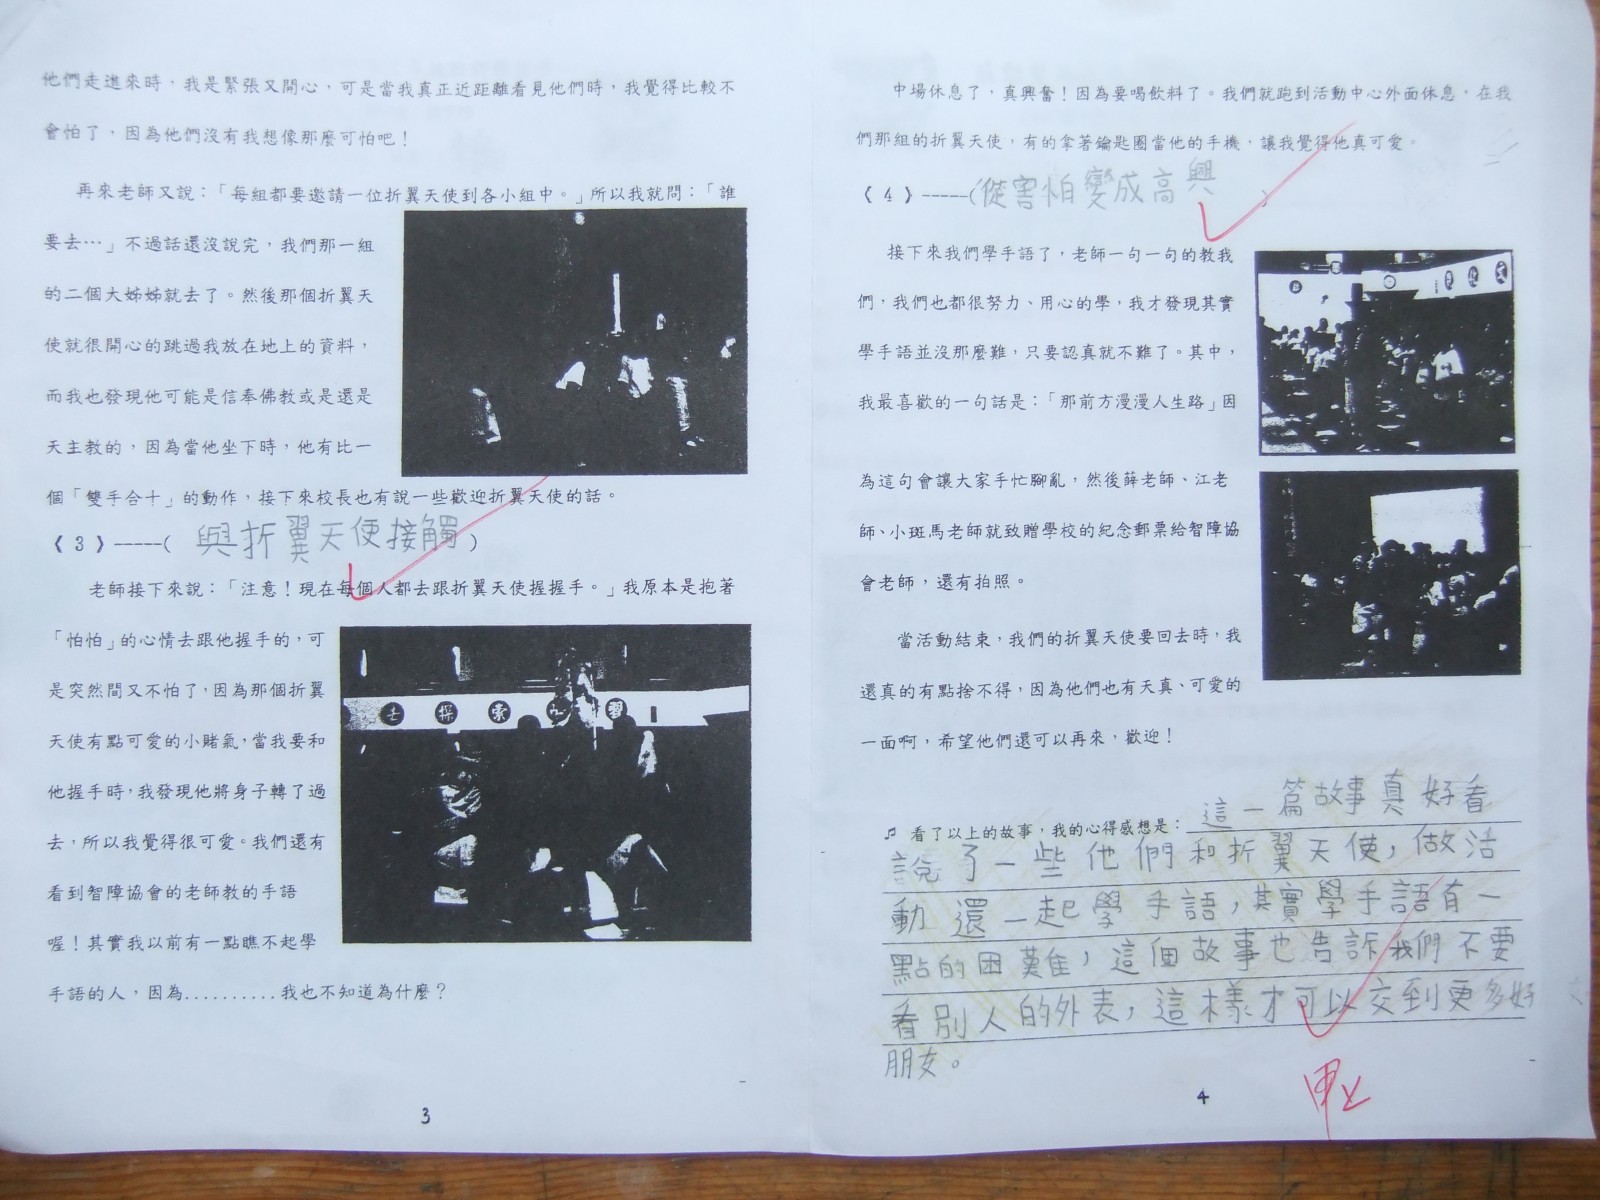 他們走進來時，我是緊張又開心，可是當我真正近距離看見他們時，我覺得比較不
會怕了，因為他們沒有我想像那麼可怕吧！
再來老師又說：「每組都要邀請一位折翼天使到各小組中。」所以我就問：「誰
要去…」不過話還沒說完，我們那一組
的二個大姊姊就去了。然後那個折翼天
使就很開心的跳過我放在地上的資料，
而我也發現他可能是信奉佛教或是還是
天主教的，因為當他坐下時，他有比一
個「雙手合十」的動作，接下來校長也有說一些歡迎折翼天使的話。
《 3 》-----( 與折翼天使接觸 )
老師接下來說：「注意！現在每個人都去跟折翼天使握握手。」我原本是抱著
「怕怕」的心情去跟他握手的，可
是突然間又不怕了，因為那個折翼
天使有點可愛的小賭氣，當我要和
他握手時，我發現他將身子轉了過
去，所以我覺得很可愛。我們還有
看到智障協會的老師教的手語
喔！其實我以前有一點瞧不起學
手語的人，因為..........我也不知道為什麼？
探索
習
3
中場休息了，真興奮！因為要喝飲料了。我們就跑到活動中心外面休息，在我
們那組的折翼天使，有的拿著鑰匙圈當他的手機，讓我覺得他真可愛。
《 4 》-----(從害怕變成高興 )
接下來我們學手語了，老師一句一句的教我
們，我們也都很努力、用心的學，我才發現其實
學手語並沒那麼難，只要認真就不難了。其中，
我最喜歡的一句話是：「那前方漫漫人生路」因
為這句會讓大家手忙腳亂，然後薛老師、江老
師、小斑馬老師就致贈學校的紀念郵票給智障協
會老師，還有拍照。
當活動結束，我們的折翼天使要回去時，我
還真的有點捨不得，因為他們也有天真、可愛的
一面啊，希望他們還可以再來，歡迎！
♫ 看了以上的故事，我的心得感想是：這一篇故事真好看
說了一些他們和折翼天使，做活
動還一起學手語，其實學手語有一
點的困難，這個故事也告訴我們不要
看別人的外表，這樣才可以交到更多好
朋友。
甲上
4